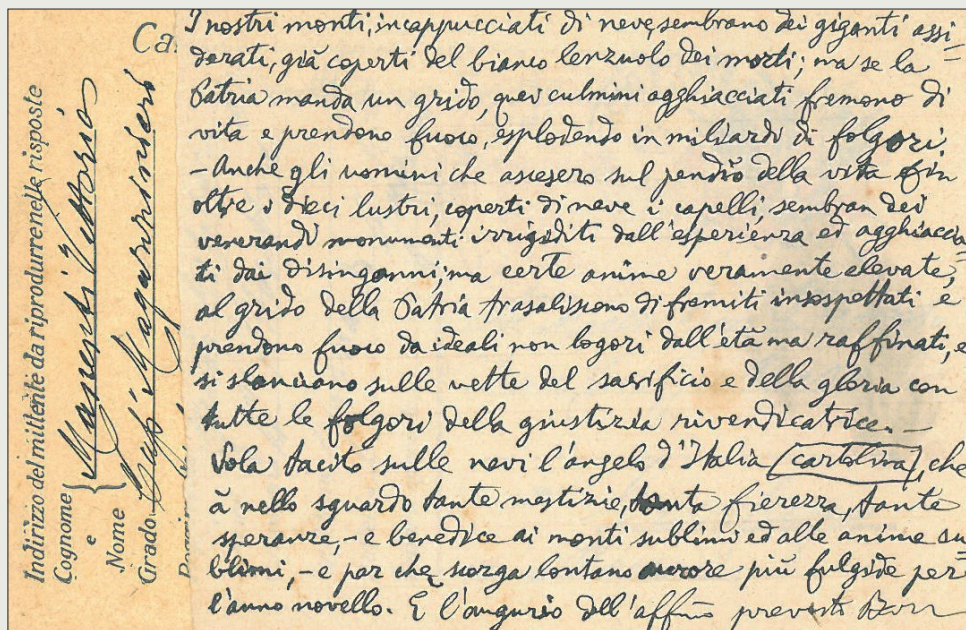 Indirizzo del mittente da riprodurre nelle risposte
Cognome
e
Nome
Grado
Ca
I nostri monti, incappucciati di neve, sembrano dei giganti assi=
derati, già coperti del bianco lenzuolo dei morti; ma se la
Patria manda un grido, quei culmini agghiacciati fremono di
vita e prendono fuoco, esplodendo in miliardi di folgori
- Anche gli uomini che ascesero sul pendio della vita fin
oltre i dieci lustri, coperti di neve i capelli, sembran dei
venerandi monumenti irrigiditi dall'esperienza ed agghiaccia=
ti dai disinganni; ma certe anime veramente elevate,
al grido della Patria trasaliscono di fremiti insospettati e
prendono fuoco da ideali non logori dall'età ma raffinati, e
si slanciano sulle vette del sacrificio e della gloria con
tutte le folgori della giustizia rivendicatrice. -
Vola tacito sulle nevi l'angelo d'Italia (cartolina), che
à nello sguardo tante mestizie, tanta fierezza, tante
speranze, - e benedice ai monti sublimi ed alle anime su=
blimi, - e par che scorga lontano aurore più fulgide per
l'anno novello. È l'augurio dell'aff.mo prevosto